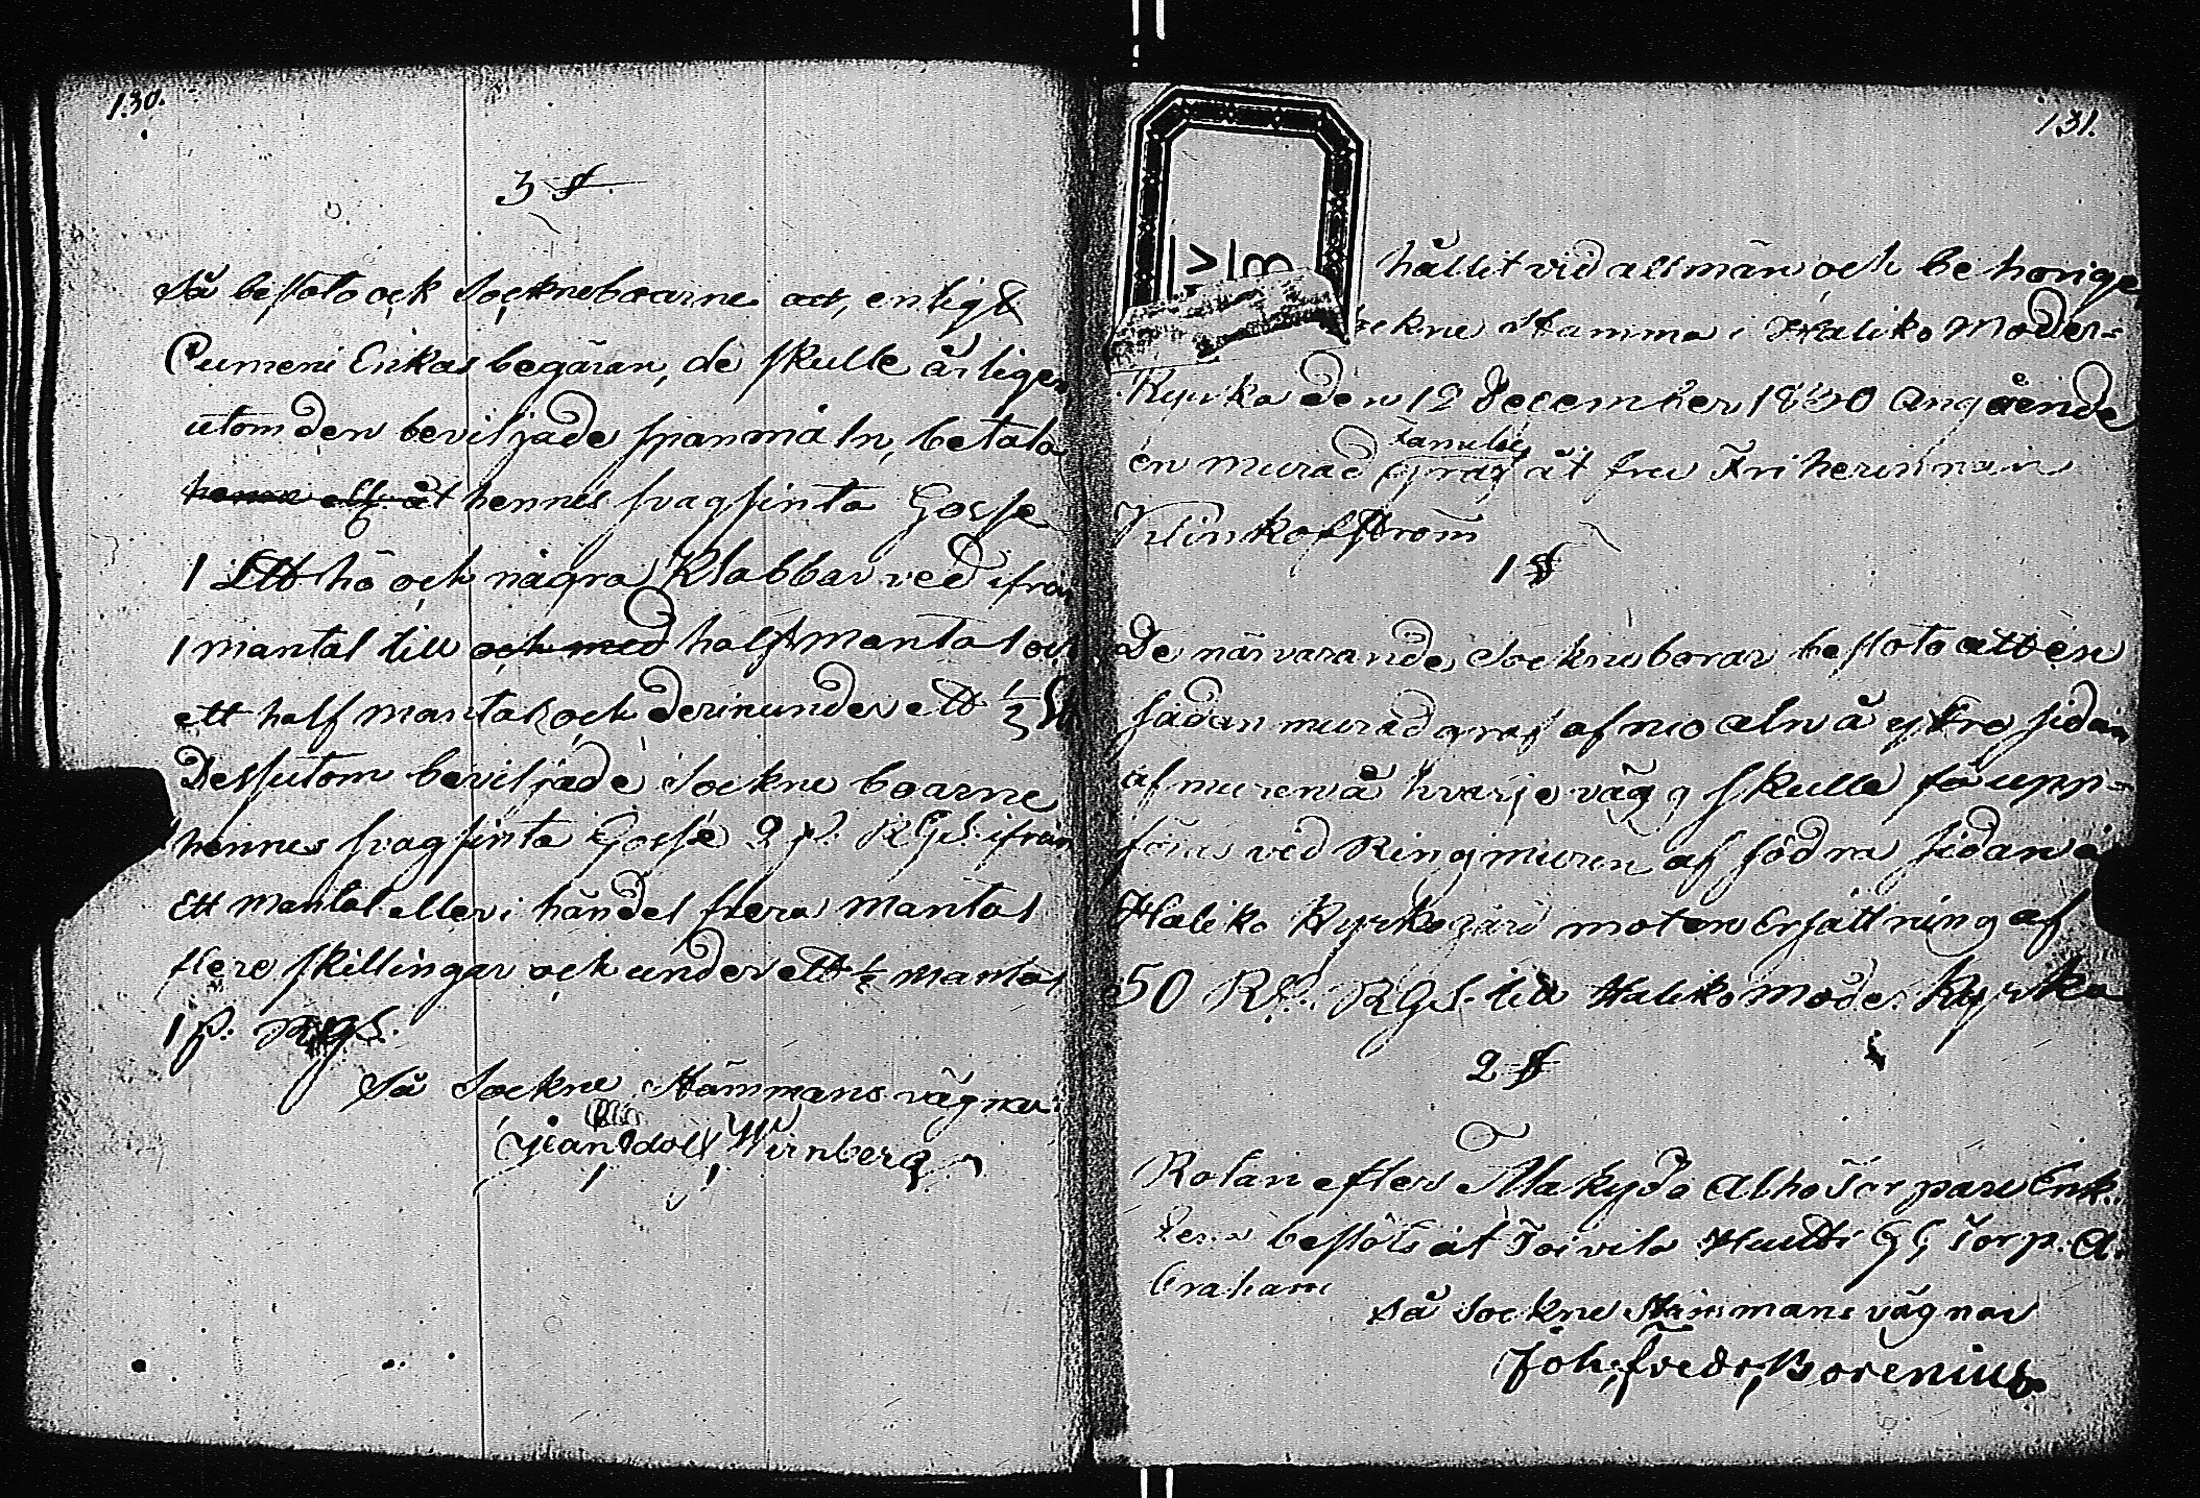 130.
3 §
Så besloto ock Sockneboarne att, enligt
Pumeni Erikas begäran, de skulle årligen
utom den beviljade spanmåln, betala
åt hennes svagsinta Gosse
1 L℔ hö och några Klabbar ved ifrån
1 mantal till och med halft mantal och
ett half mantal och derinunder ett ½ L℔
Dessutom beviljade Sockne boarne
hennes svagsinta Gosse 2 p. RGS. ifrån
Ett mantal eller i händel flera mantal
flere skillingar och under ett ½ mantal
1 p. RGS.
På Sockne Stämmans vägnar
Wirnberg
131.
IVIB
hållit vid allmän och be horige
Sockne Stamma i Haliko Moder-
Kyrka den 12 December 1830 Angående
Familie
en murad graf åt fru Friherinnan
Vilinkofström
1 §
De närvarande Sockneborar besloto att en
sådan murad graf af nio aln å yttre sidan
af muren å hvarje vägg skulle få upp-
föras vid Ringmuren af södra sidan å
Haliko Kyrkogård mot en Ersättning af
50 Rb. RGS. till Haliko Moder Kyrka
2 §
Rotan efter Makydö Alho Torpare Enk.
bestöts åt Toivila Hutti Torp. A.
braham
På Sockne Stämmans vägnar
Joh: Fredr: Borenius